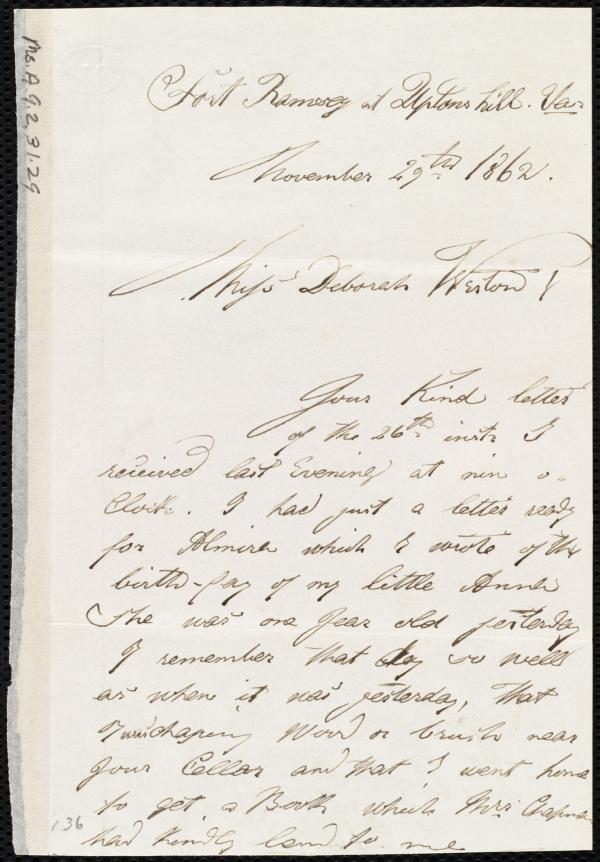 Ms. A 9.2.31.29
Fort Ramsey at Uptons hill. Va:
November 29th 1862.
Miss Deborah Weston!
Your Kind letter
of the 26th inst: I
received last Evening at nin o-
Clock. I had just a letter ready
for Almira which I wrote of the
birth-fay of my little Anna
She was one Year old yesterday
I remember that day so well
as when it was yesterday, that
I was chaping Wood or brush near
your Cellar and that I went home
to get a Book which Mrs. Chapman
had kindly lend to me
136